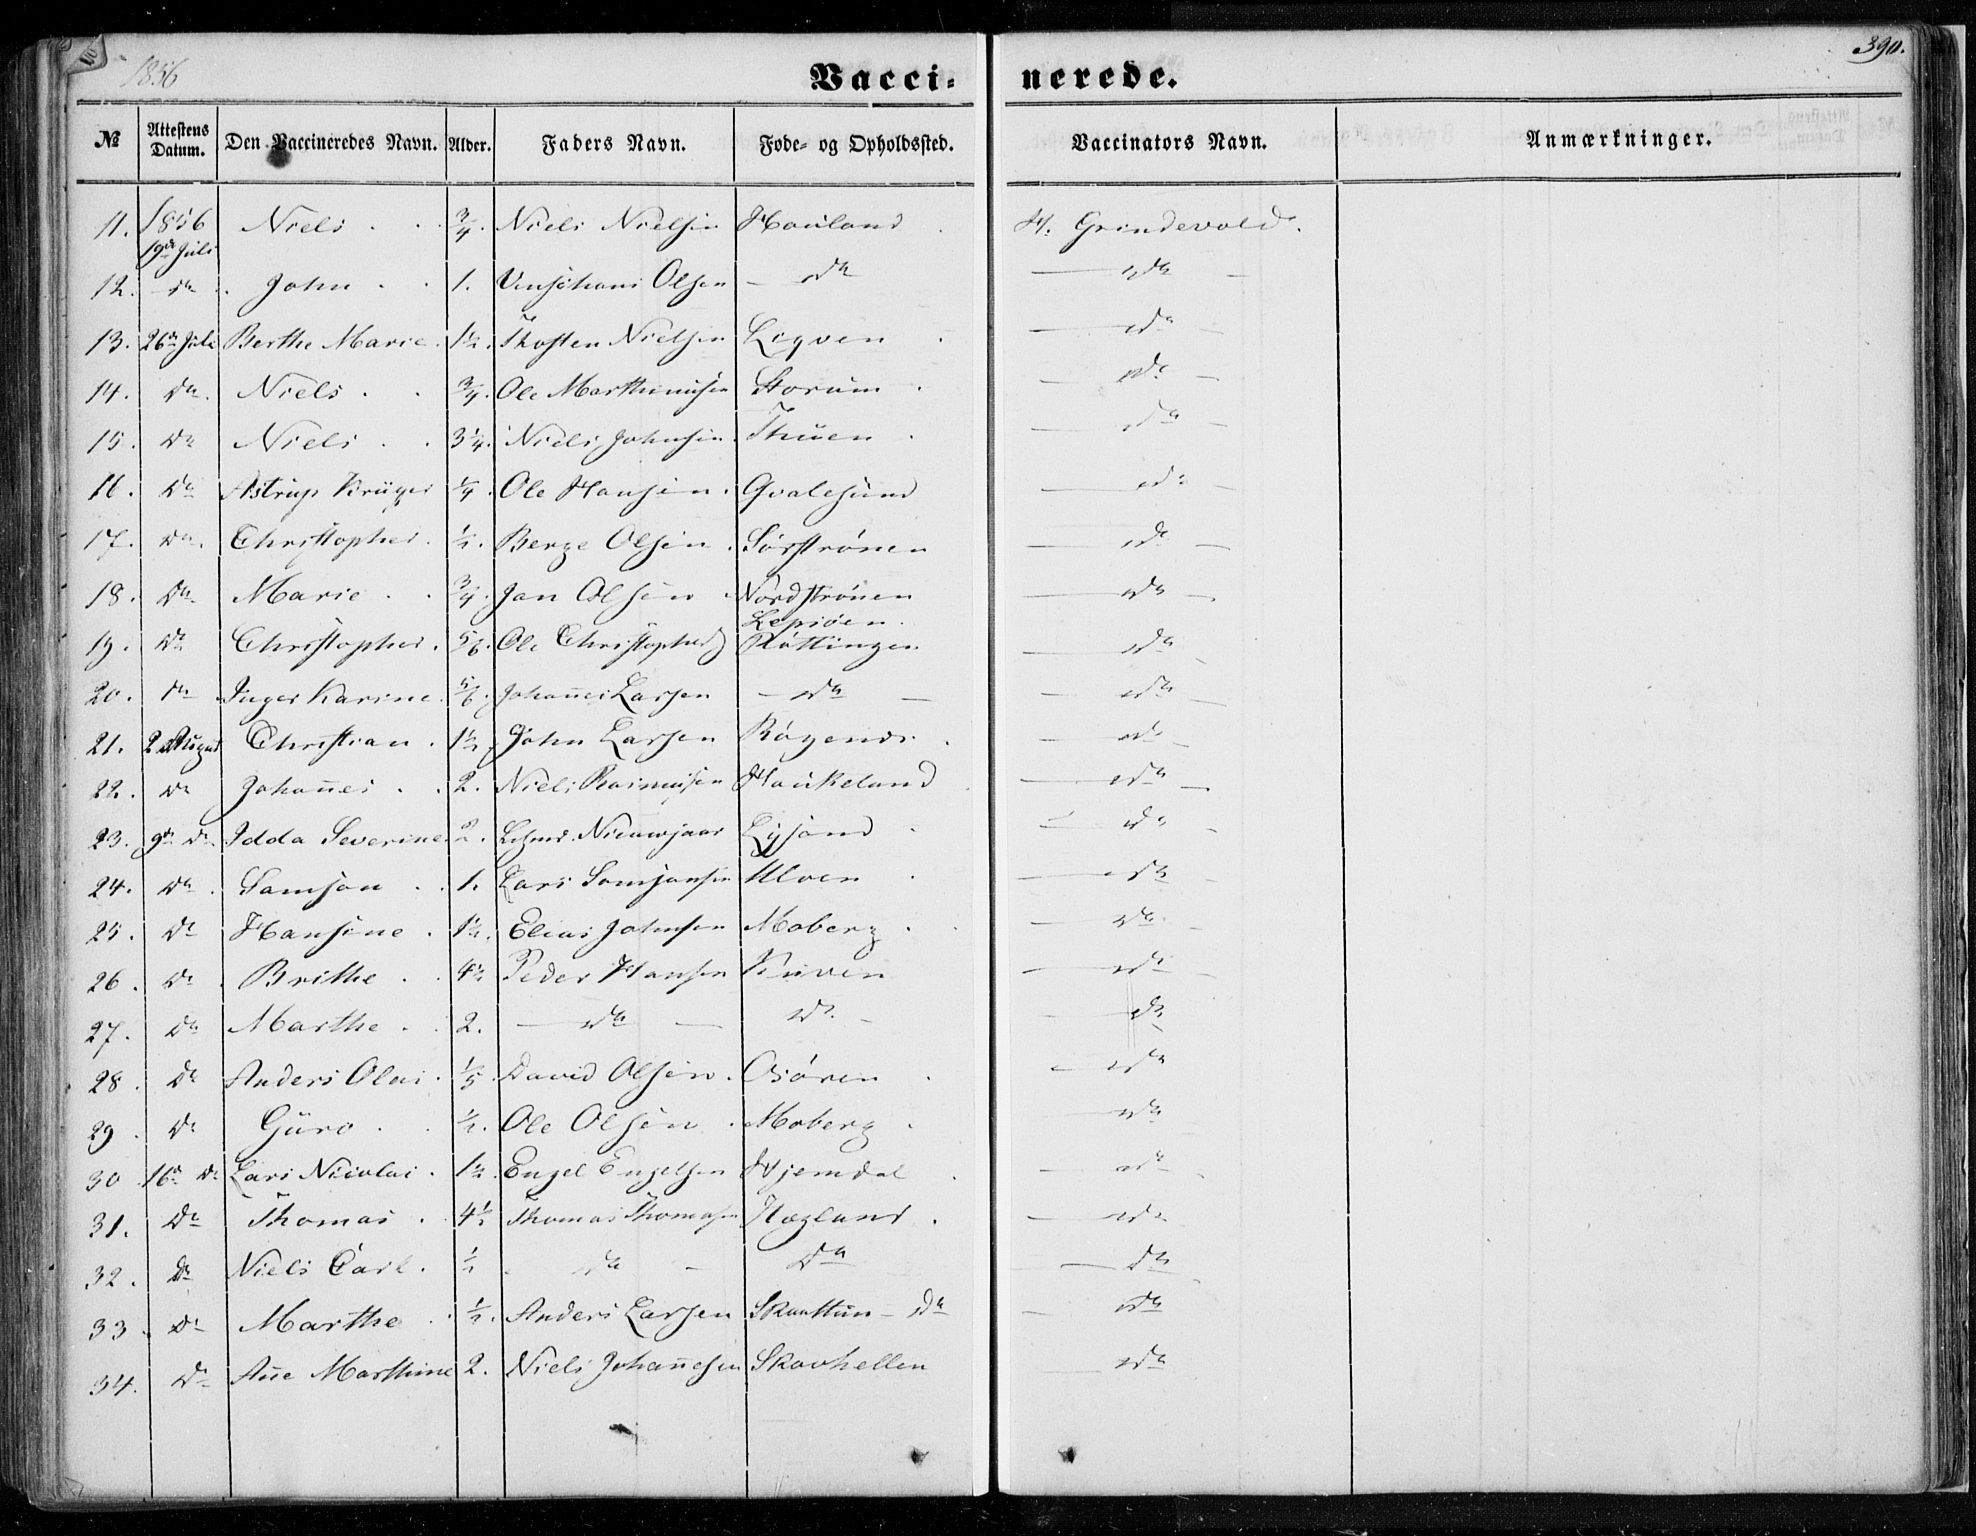 1856
390.
Vacci- nerede.
№ | Attestens Datum. | Den Vaccineredes Navn. | Alder. | Faders Navn. | Føde- og Opholdssted. | Vaccinators Navn. | Anmærkninger.
11. | 1856 19de Juli | Niels | 3/4. | Niels Nielsen | Hauland | H. Grindevold.
12. | do | John | 1. | Olsen | do | do
13. | 26de Juli | Berthe Marie | 1 1/2. | Thosten Nielsen | Liqven | do
14. | do | Niels | 3/4. | Ole Marthinussen | Storum | do
15. | do | Niels | 3 1/4. | Niels Johnsen | Thuen | do
16. | do | Astrup Krüger | 1/4. | Ole Hansen | Qvalesund | do
17. | do | Christopher | 1/2. | Berge Olsen | Sørstrønen | do
18. | do | Marie | 3/4. | Jan Olsen | Nordstrønen | do
19. | do | Christopher | 5/6. | Ole Christophers | Lepsöen. Røttingen | do
20. | do | Inger Karine | 5/6. | Johannes Larsen | do | do
21. | 2 August | Christian | 1 1/2. | John Larsen | Røgenes | do
22. | do | Johannes | 2. | Niels Rasmussen | Haukeland | do
23. | 9de do | Idda Severine | 2. | Nieuwejaar | Lysand | do
24. | do | Samson | 1. | Lars Samsonsen | Ulven | do
25. | do | Hansine | | Elias Johnsen | Moberg | do
26. | do | Brithe | 4 1/2 | Peder Hansen | Kuven | do
27. | do | Marthe | 2. | do | do | do
28. | do | Anders Olai | 1/5. | David Olsen | Osøren | do
29. | do | Güro | 1/2. | Ole Olsen | Moberg | do
30. | 16de do | Lars Nicolai | 1 1/2. | Engel Engelsen | Hjemdal | do
31. | do | Thomas | 4 1/2 | Thomas Thomasen | Hegland | do
32. | do | Niels Carl | 1/2 | do | do | do
33. | do | Marthe | 1/2. | Anders Larsen | Skaattun - do | do
34. | do | Ane Marthine | 2. | Niels Johannesen | Skavhellen | do